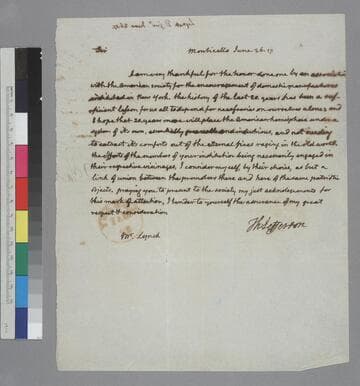 Sir Monticello June 26. 17
I am very thankful for the honor done me by an association
with the American society for the encouragement of domestic manufactures
instituted in New York. the history of the last 20 years has been a suf-
ficient lesson for us all to depend for necessaries on ourselves alone; and
I hope that 20 years more will place the American hemisphere under a
system of it's own, essentially peaceable and industrious, and not needing
to extract it's comforts out of the eternal fires raging in the old world.
the efforts of the members of your institution being necessarily engaged in
their respective vicinages, I consider myself, by their choice, as but a
link of union between the promoters there and here of the same patriotic
objects. praying you to present to the society my just acknolegements for
this mark of attention, I tender to yourself the assurance of my great
respect & consideration
Th: Jefferson
Mr. Lynch